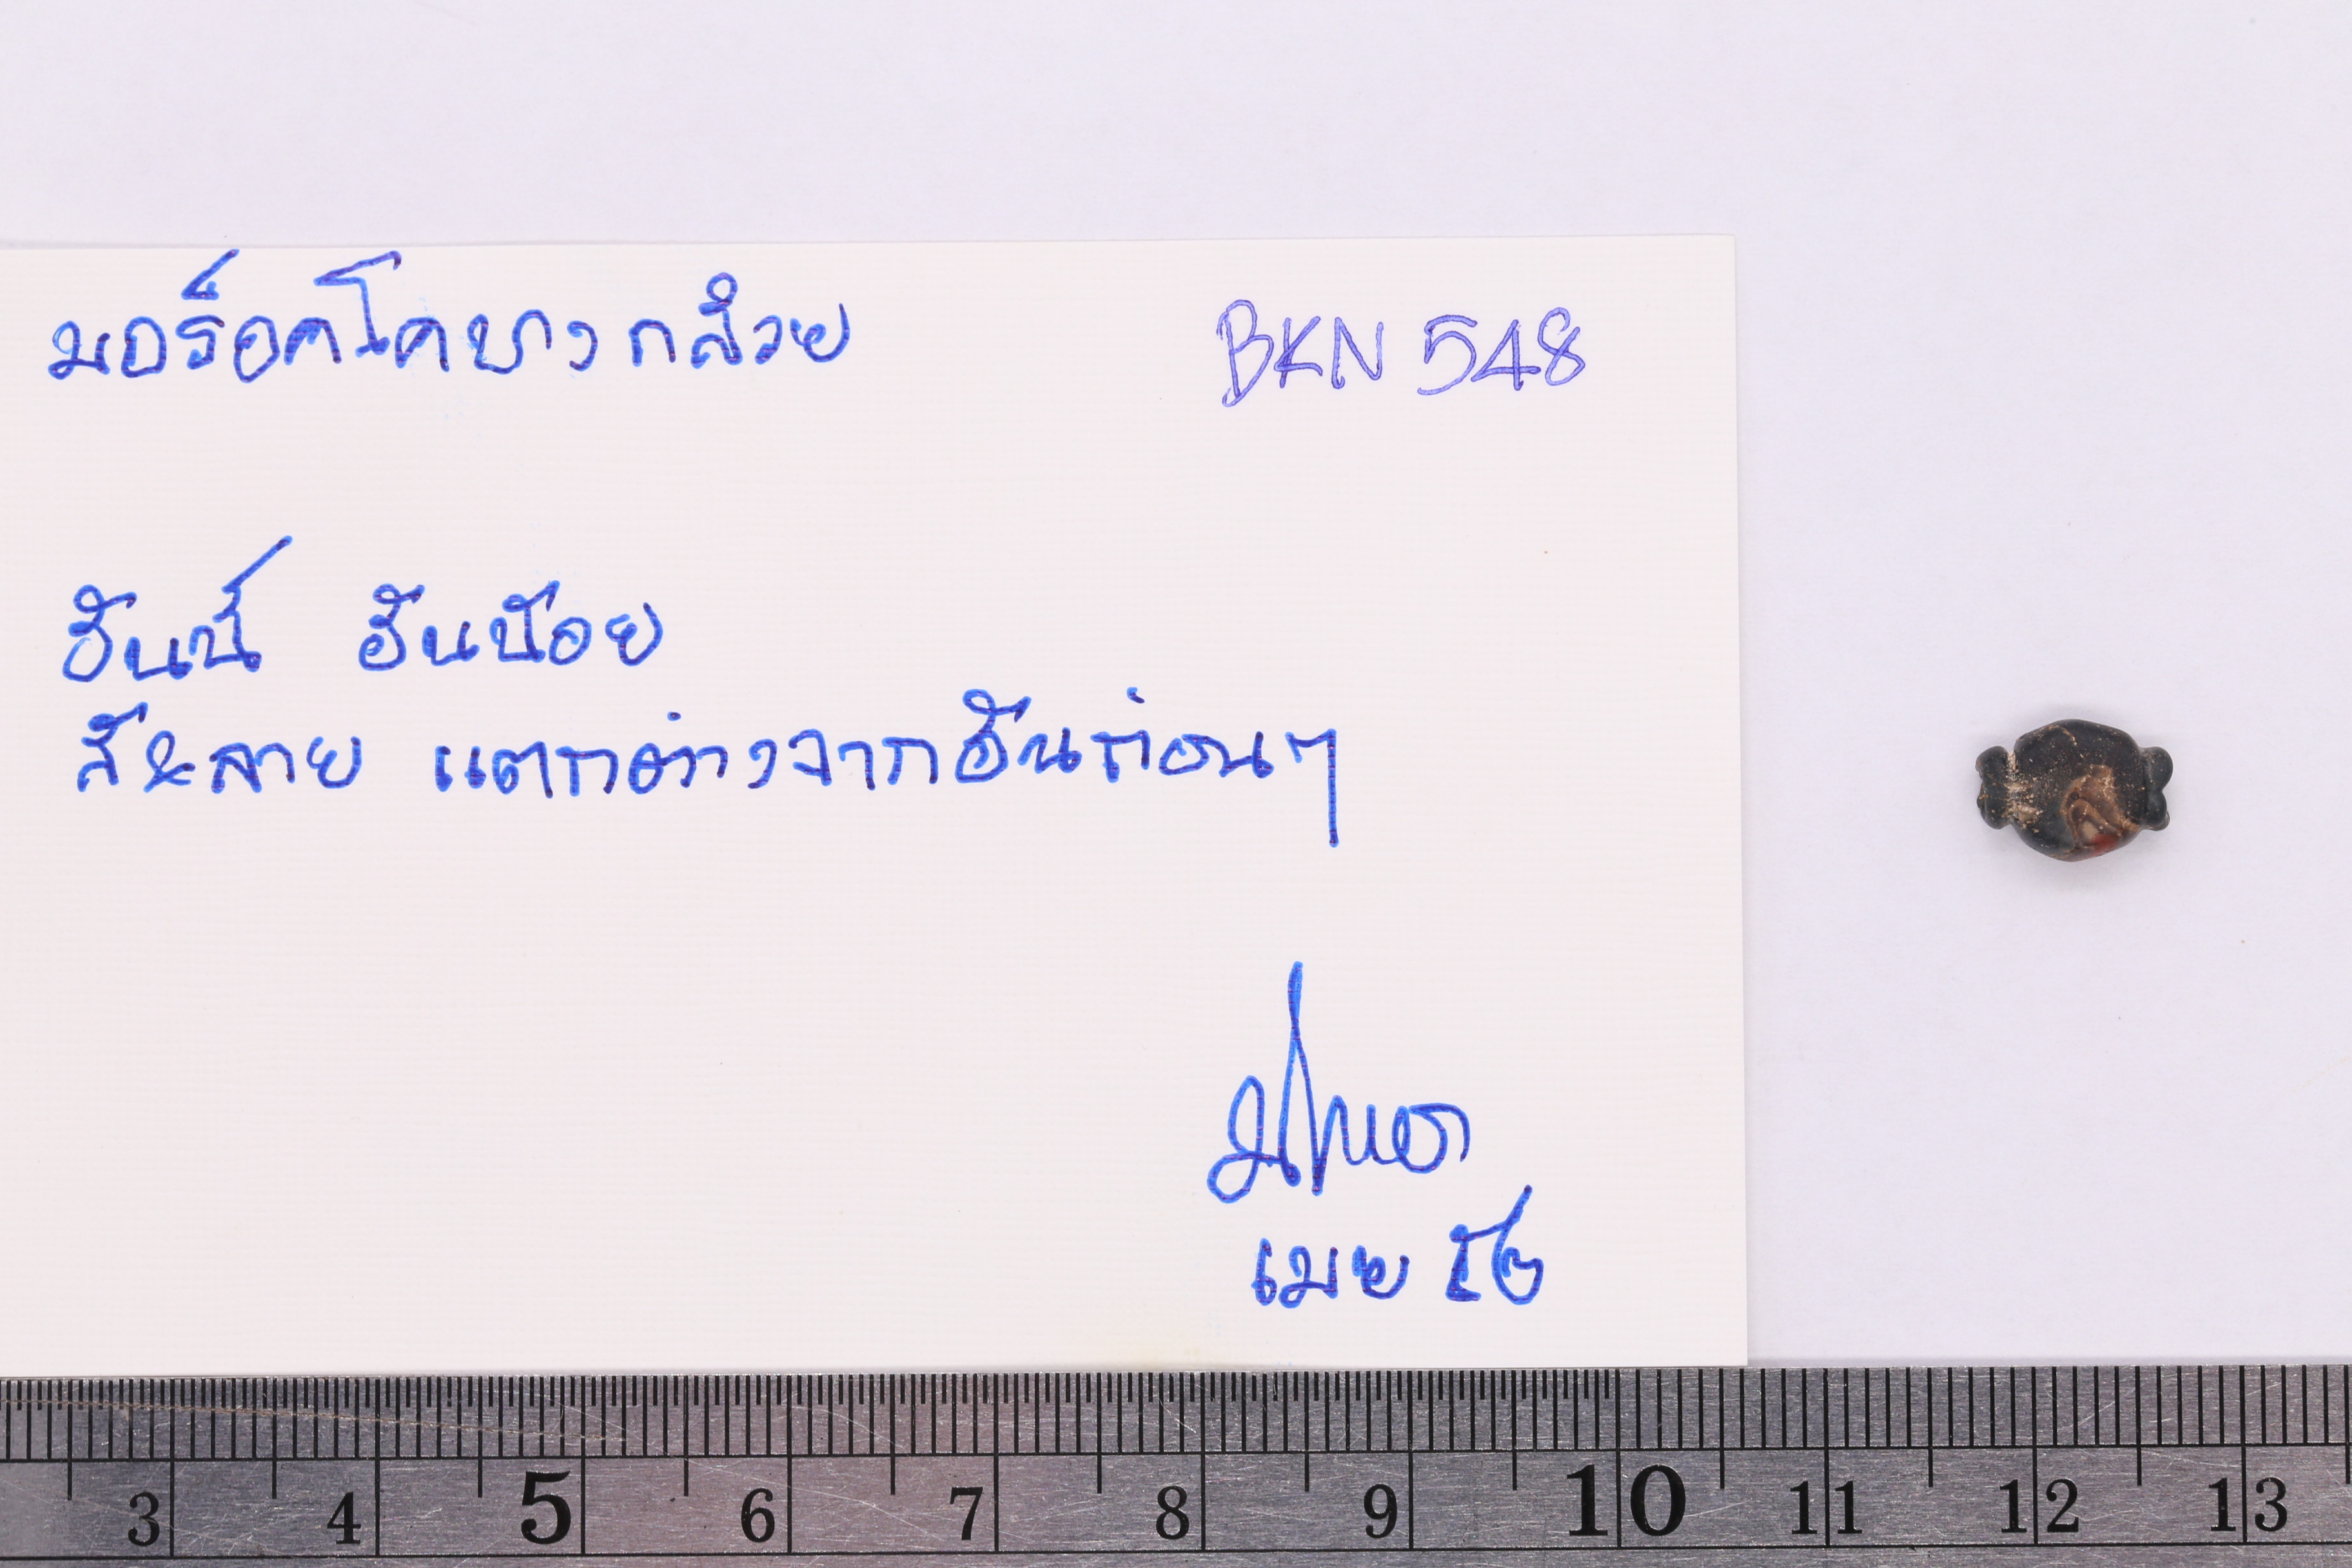 มอร็อคโคบางกล้วย
BKN 548
อันนี้ อันน้อย
สีหลาย แตกต่างจากอันก่อนๆ
เมย ๕๒
3 4 5 6 7 8 9 10 11 12 13